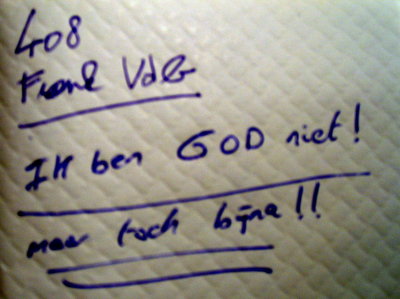 408
Frank VdB
Ik ben GOD niet!
maar toch bijna!!